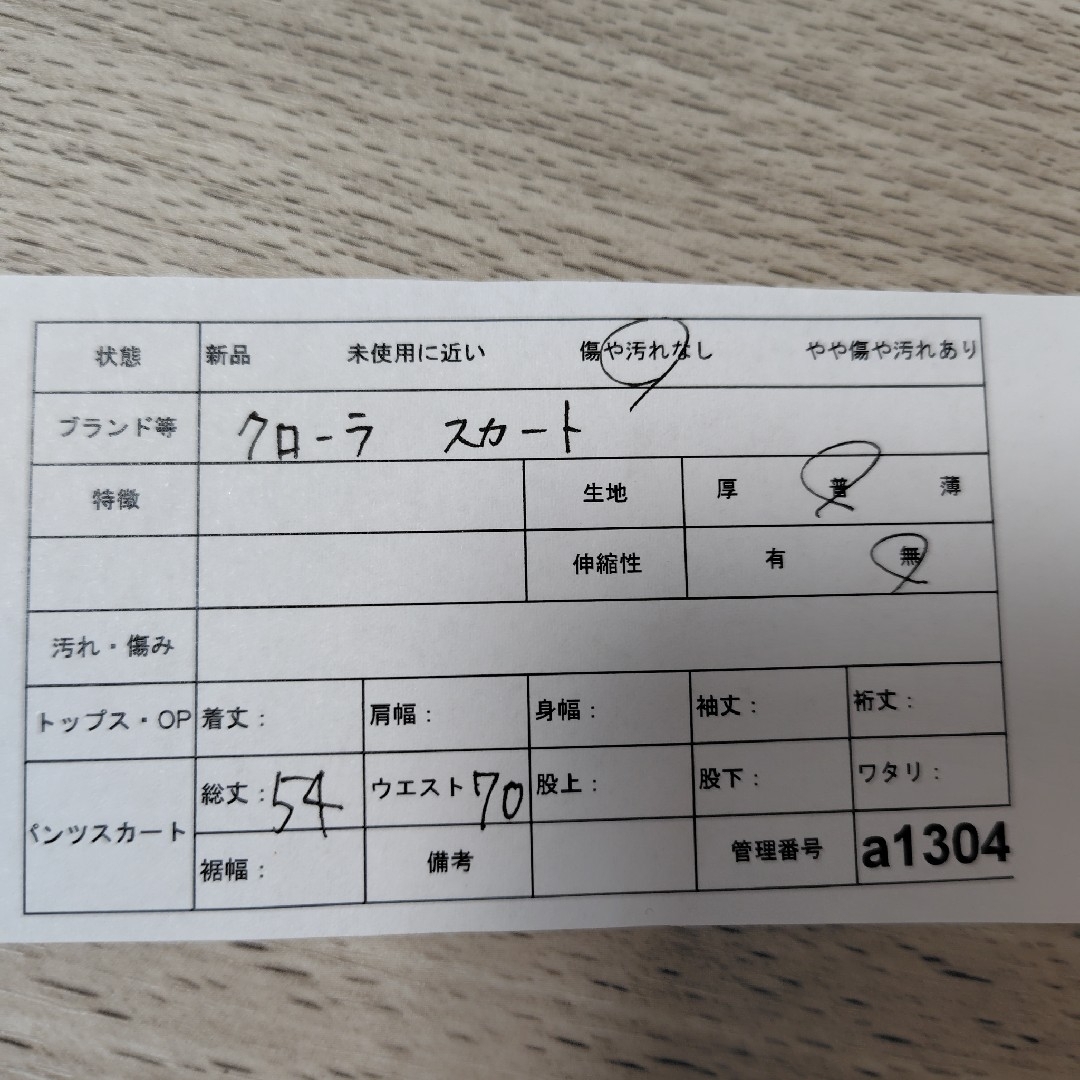 状態 新品 未使用に近い 傷や汚れなし やや傷や汚れあり
ブランド等 クローラ スカート
特徴 生地 厚 普 薄
伸縮性 有 無
汚れ・傷み
トップス・OP 着丈： 肩幅： 身幅： 袖丈： 裄丈：
パンツスカート 総丈：54 ウエスト 70 股上： 股下： ワタリ：
裾幅： 備考 管理番号 a1304